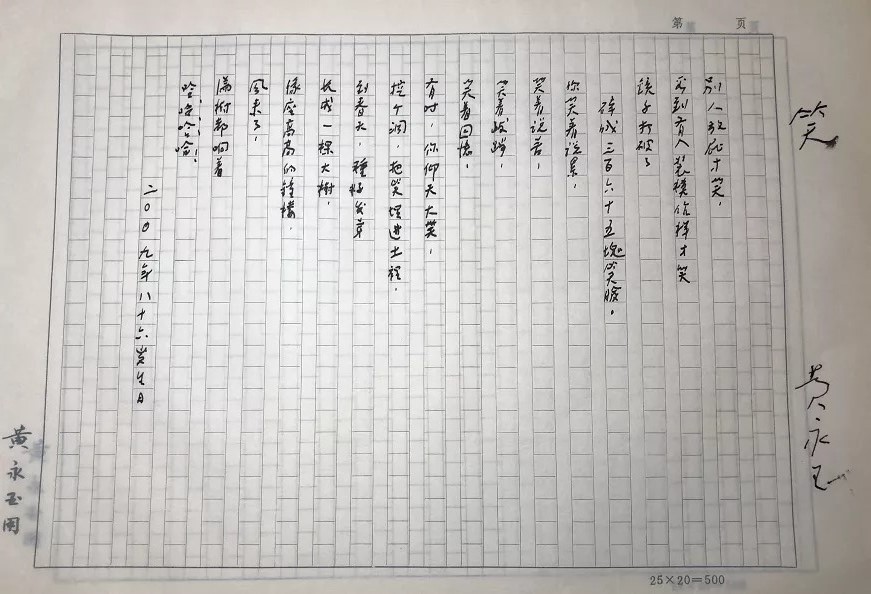 第 页
笑
黄永玉
别人放屁才笑，
看到有人装模作样才笑
镜子打破了
碎成三百六十五块笑脸。
你笑着说累，
笑着说苦，
笑着跋涉，
笑着回忆。
有时，你仰天大笑，
挖个洞，把笑埋进土裡，
到春天，種籽发芽
长成一棵大樹，
像座高高的鐘樓，
風来了，
满樹都响着
哈！哈！哈！哈！
二〇〇九年八十六岁生日
黄永玉用
25×20=500